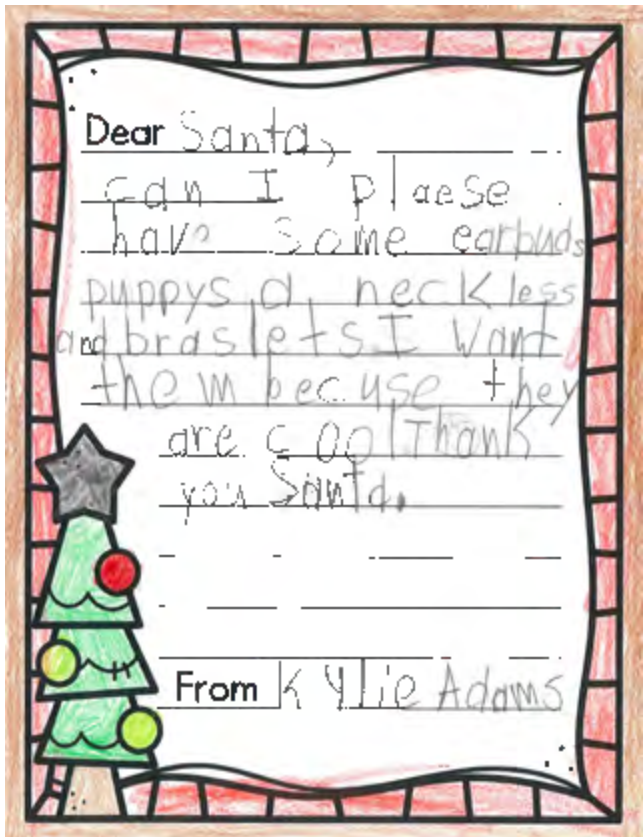 Dear Santa,
can I plaese
have some earbuds
puppys a neckless
and braslets I want
them becuse they
are cool Thank
you Santa.
From Kylie Adams